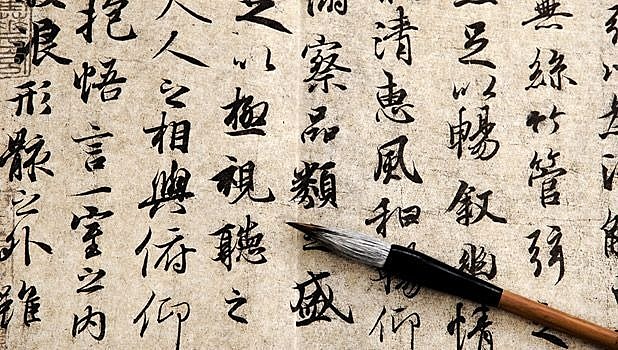 無絲竹管弦之
足以暢敘幽情
清惠風和暢仰
察品類之盛
足以極視聽之
人之相與俯仰
抱悟言一室之內
浪形骸之外雖